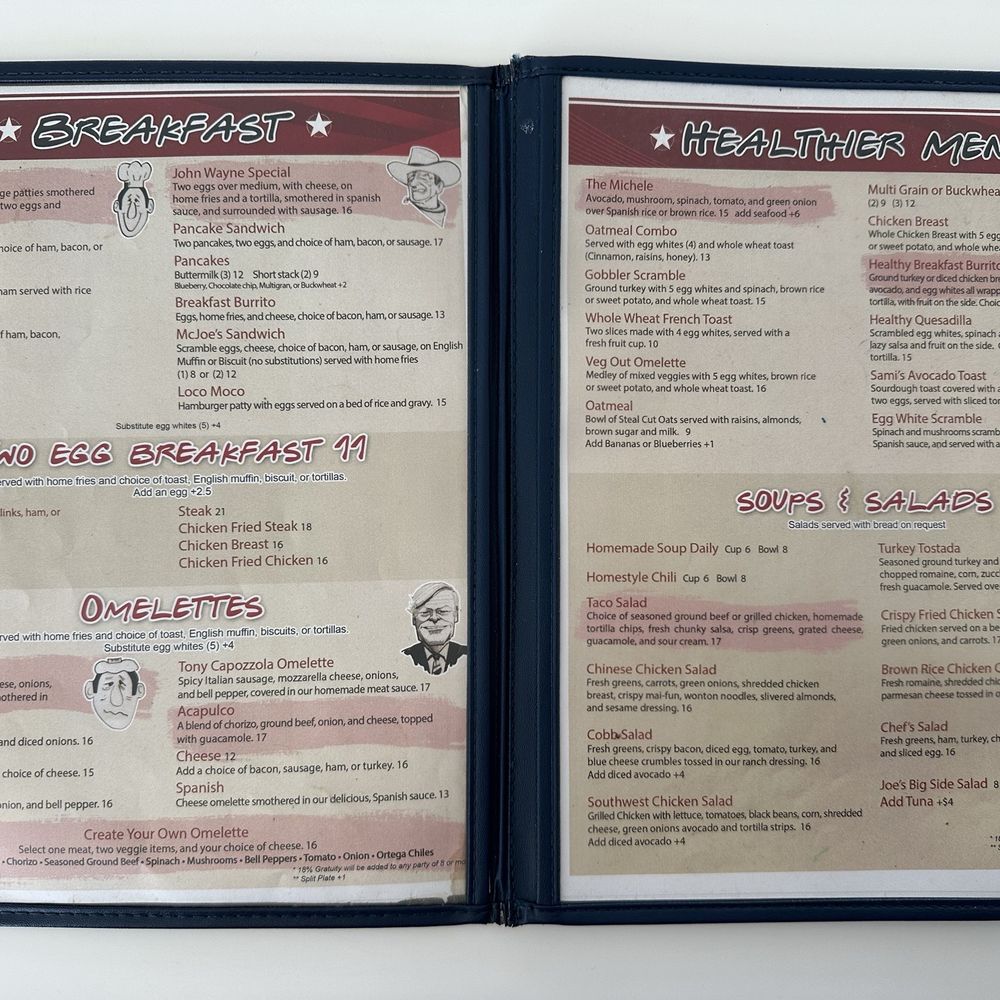 BREAKFAST
ge patties smothered
two eggs and
hoice of ham, bacon, or
ham served with rice
f ham, bacon,
John Wayne Special
Two eggs over medium, with cheese, on
home fries and a tortilla, smothered in spanish
sauce, and surrounded with sausage. 16
Pancake Sandwich
Two pancakes, two eggs, and choice of ham, bacon, or sausage. 17
Pancakes
Buttermilk (3) 12 Short stack (2) 9
Blueberry, Chocolate chip, Multigran, or Buckwheat +2
Breakfast Burrito
Eggs, home fries, and cheese, choice of bacon, ham, or sausage. 13
McJoe's Sandwich
Scramble eggs, cheese, choice of bacon, ham, or sausage, on English
Muffin or Biscuit (no substitutions) served with home fries
(1) 8 or (2) 12
Loco Moco
Hamburger patty with eggs served on a bed of rice and gravy. 15
Substitute egg whites (5) +4
WO EGG BREAKFAST 11
erved with home fries and choice of toast, English muffin, biscuit, or tortillas.
Add an egg +2.5
links, ham, or
Steak 21
Chicken Fried Steak 18
Chicken Breast 16
Chicken Fried Chicken 16
OMELETTES
rved with home fries and choice of toast, English muffin, biscuits, or tortillas.
Substitute egg whites (5) +4
ese, onions,
othered in
and diced onions. 16
choice of cheese. 15
onion, and bell pepper. 16
Tony Capozzola Omelette
Spicy Italian sausage, mozzarella cheese, onions,
and bell pepper, covered in our homemade meat sauce. 17
Acapulco
A blend of chorizo, ground beef, onion, and cheese, topped
with guacamole. 17
Cheese 12
Add a choice of bacon, sausage, ham, or turkey. 16
Spanish
Cheese omelette smothered in our delicious, Spanish sauce. 13
Create Your Own Omelette
Select one meat, two veggie items, and your choice of cheese. 16
• Chorizo • Seasoned Ground Beef • Spinach • Mushrooms • Bell Peppers • Tomato • Onion • Ortega Chiles
* 18% Gratuity will be added to any party of 8 or mo
** Split Plate +1
HEALTHIER MEN
The Michele
Avocado, mushroom, spinach, tomato, and green onion
over Spanish rice or brown rice. 15 add seafood +6
Oatmeal Combo
Served with egg whites (4) and whole wheat toast
(Cinnamon, raisins, honey). 13
Gobbler Scramble
Ground turkey with 5 egg whites and spinach, brown rice
or sweet potato, and whole wheat toast. 15
Whole Wheat French Toast
Two slices made with 4 egg whites, served with a
fresh fruit cup. 10
Veg Out Omelette
Medley of mixed veggies with 5 egg whites, brown rice
or sweet potato, and whole wheat toast. 16
Oatmeal
Bowl of Steal Cut Oats served with raisins, almonds,
brown sugar and milk. 9
Add Bananas or Blueberries +1
Multi Grain or Buckwhea
(2) 9 (3) 12
Chicken Breast
Whole Chicken Breast with 5 egg
or sweet potato, and whole whea
Healthy Breakfast Burrito
Ground turkey or diced chicken bre
avocado, and egg whites all wrapp
tortilla, with fruit on the side. Choic
Healthy Quesadilla
Scrambled egg whites, spinach a
lazy salsa and fruit on the side.
tortilla. 15
Sami's Avocado Toast
Sourdough toast covered with a
two eggs, served with sliced tor
Egg White Scramble
Spinach and mushrooms scramb
Spanish sauce, and served with a
SOUPS & SALADS
Salads served with bread on request
Homemade Soup Daily Cup 6 Bowl 8
Homestyle Chili Cup 6 Bowl 8
Taco Salad
Choice of seasoned ground beef or grilled chicken, homemade
tortilla chips, fresh chunky salsa, crisp greens, grated cheese,
guacamole, and sour cream. 17
Chinese Chicken Salad
Fresh greens, carrots, green onions, shredded chicken
breast, crispy mai-fun, wonton noodles, slivered almonds,
and sesame dressing. 16
Cobb Salad
Fresh greens, crispy bacon, diced egg, tomato, turkey, and
blue cheese crumbles tossed in our ranch dressing. 16
Add diced avocado +4
Southwest Chicken Salad
Grilled Chicken with lettuce, tomatoes, black beans, corn, shredded
cheese, green onions avocado and tortilla strips. 16
Add diced avocado +4
Turkey Tostada
Seasoned ground turkey and
chopped romaine, corn, zucc
fresh guacamole. Served ove
Crispy Fried Chicken S
Fried chicken served on a be
green onions, and carrots. 17
Brown Rice Chicken C
Fresh romaine, shredded chic
parmesan cheese tossed in o
Chef's Salad
Fresh greens, ham, turkey, ch
and sliced egg. 16
Joe's Big Side Salad 8
Add Tuna +$4